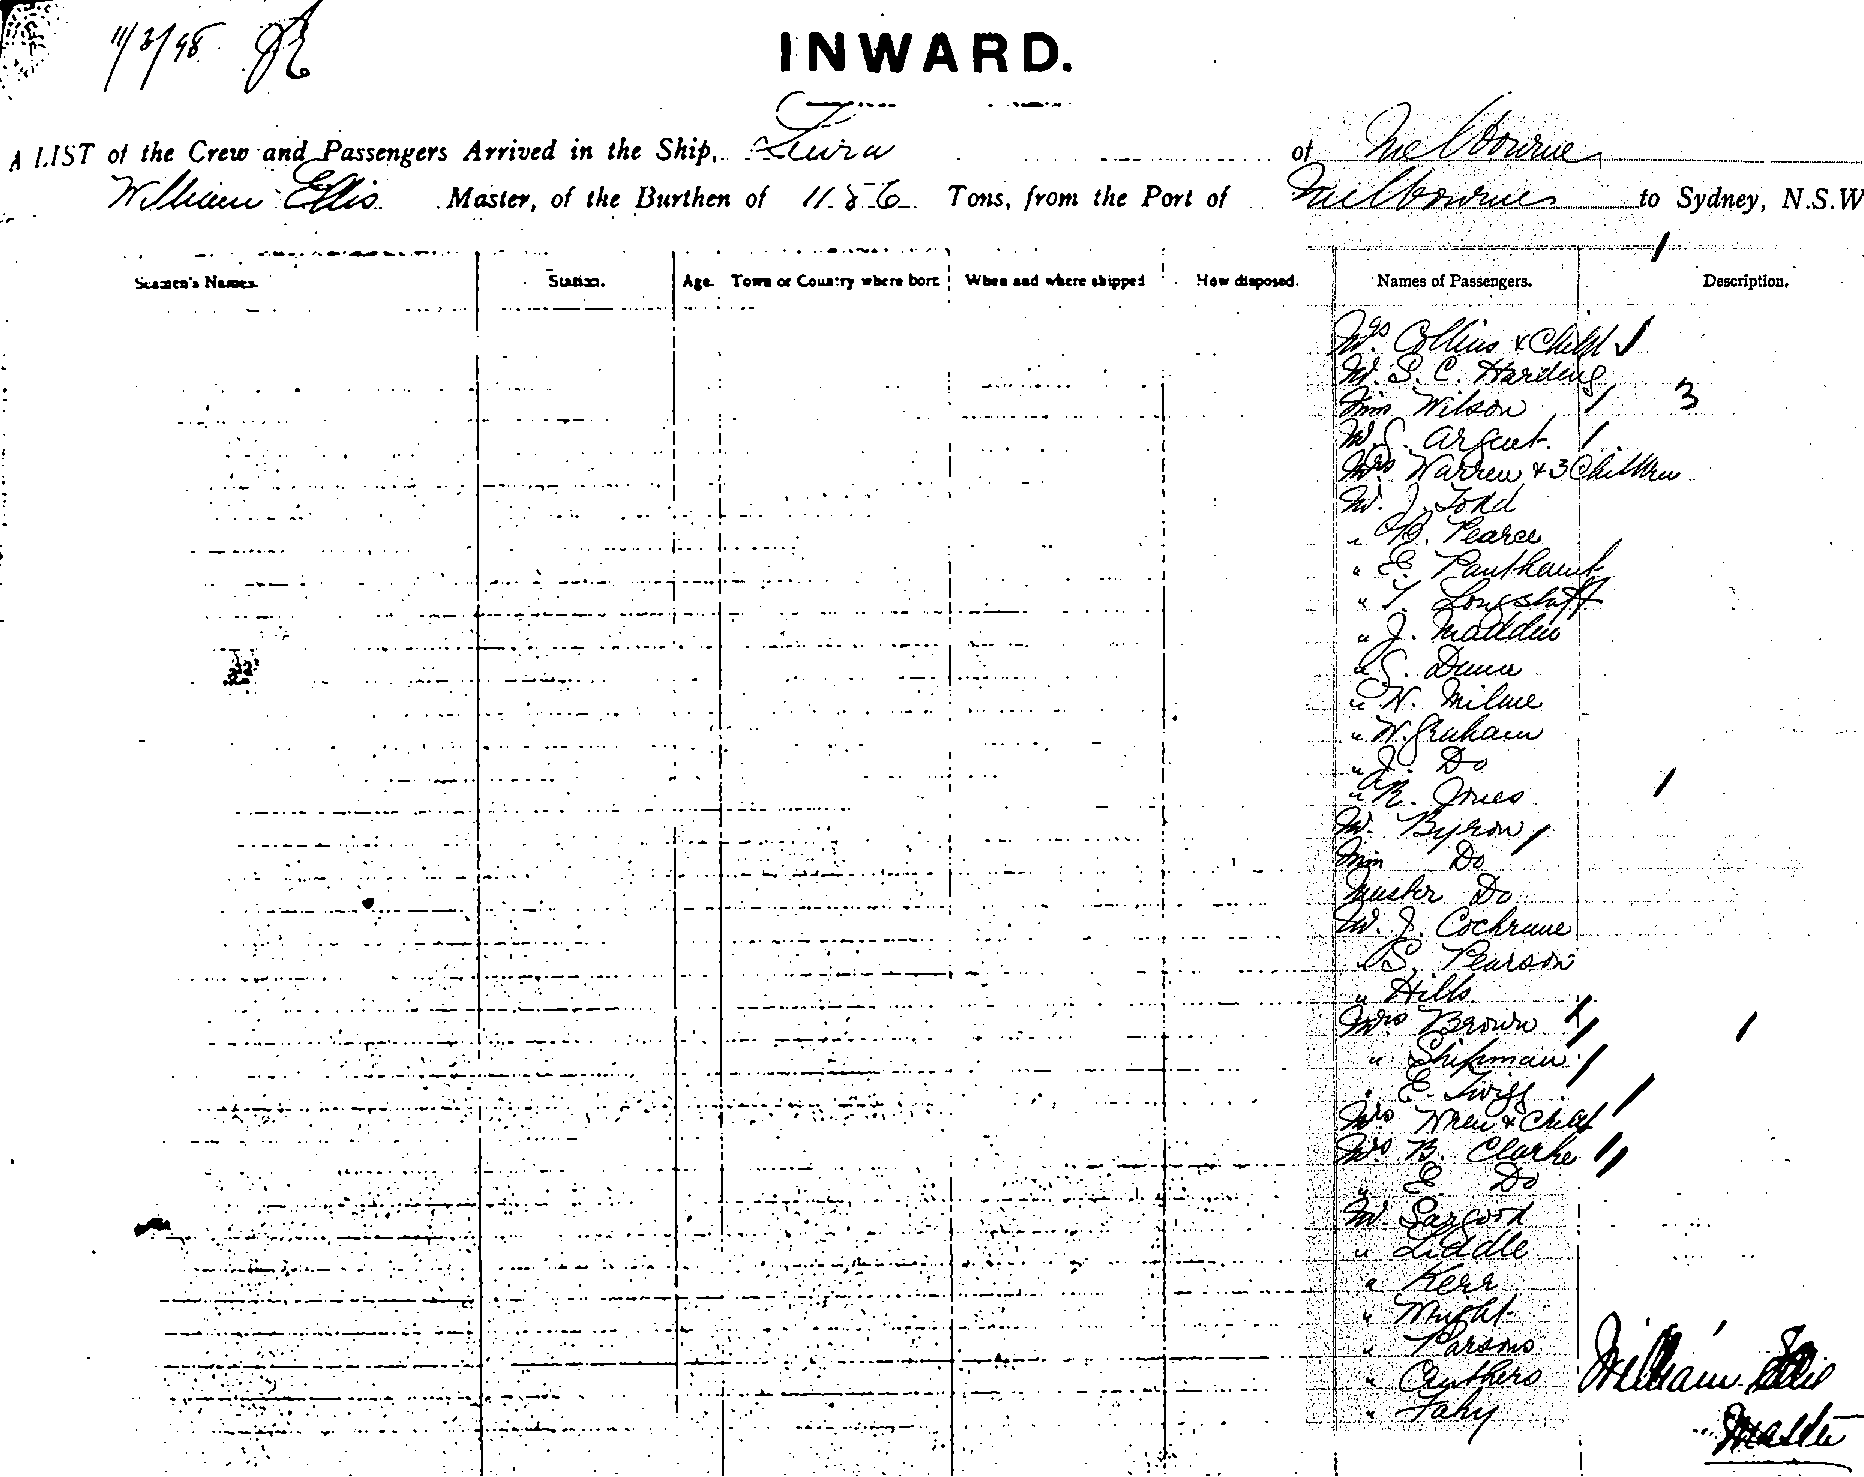 11/3/98
INWARD.
A LIST of the Crew and Passengers Arrived in the Ship, of Melbourne
William Ellis Master, of the Burthen of 1186 Tons, from the Port of Melbourne to Sydney, N.S.W
Seamen's Names. Station. Age. Town or Country where born When and where shipped How disposed. Names of Passengers. Description.
Mrs Collins & Child
Mr. S. C. Harding
Miss Wilson 3
Mr. Argent
Mrs Warren & 3 Children
Mr. J. Todd
" Pearce
" E.
" T. Longstaff
" J. Madden
" Dunn
" W. Milne
" W. Graham
" J. Do
" R. Jones
Mr. Byron
Miss Do
Master Do
Mr. J. Cochrane
" S. Pearson
" Hills
Mrs Brown
" Shipman
" E. Twigg
Mrs Wren & Child
Mrs B. Clarke
" E. Do
Mr Sargood
" Liddle
" Kerr
" Wright
" Parsons
" Cauthers
" Fahy
William Ellis
Master